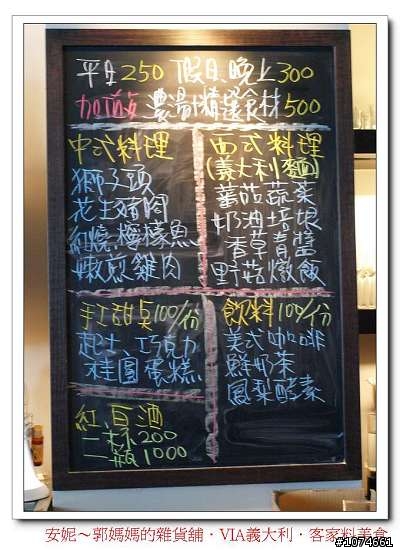 平日250 假日、晚上300
加價 濃湯+精選食材500
中式料理
獅子頭
花生豬腳
紅燒檸檬魚
嫩煎雞肉
西式料理
(義大利麵)
蕃茄蔬菜
奶油培根
香草青醬
野菇燉飯
手工甜點100/份
起士、巧克力
桂圓蛋糕
飲料100/份
美式咖啡
鮮奶茶
鳳梨酵素
紅、白酒
一杯200
一瓶1000
安妮～郭媽媽的雜貨舖・VIA義大利・客家料美食
#1074661